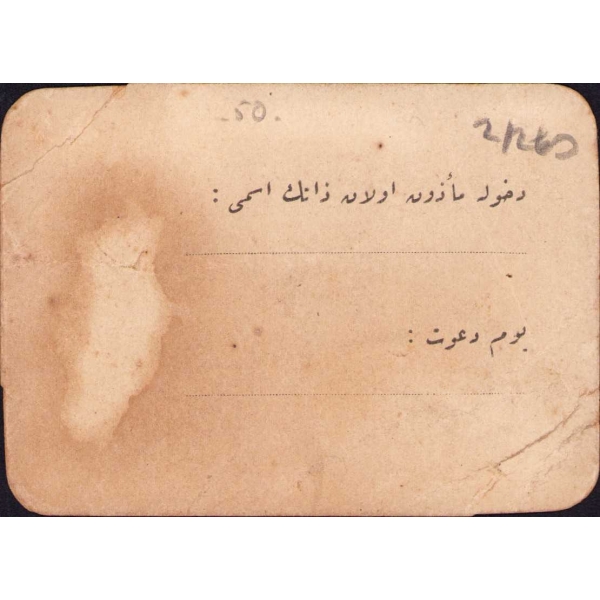 .50.
دخوله مأذون اولان ذاتك اسمى :
يوم دعوت :